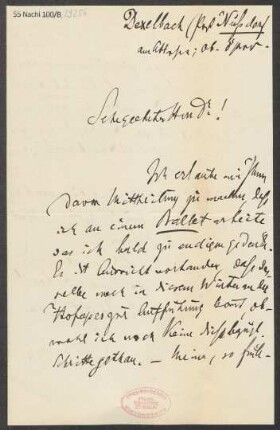 55 Nachl 100/B
Dexelbach (Post Nussdorf
am Attersee; ob. Öster.
Sehrgeehrter Herr Dr!
Ich erlaube mir Ihnen
davon Mittheilung zu machen, daß
ich an einem Ballet arbeite
das ich bald zu endigen gedenke.
Es ist Aussicht vorhanden, dass das-
selbe noch in diesem Winter an der
Hofoper zur Aufführung kommt, ob-
wohl ich noch keine diesbezügl.
Schritte gethan. — Meine, so früh-